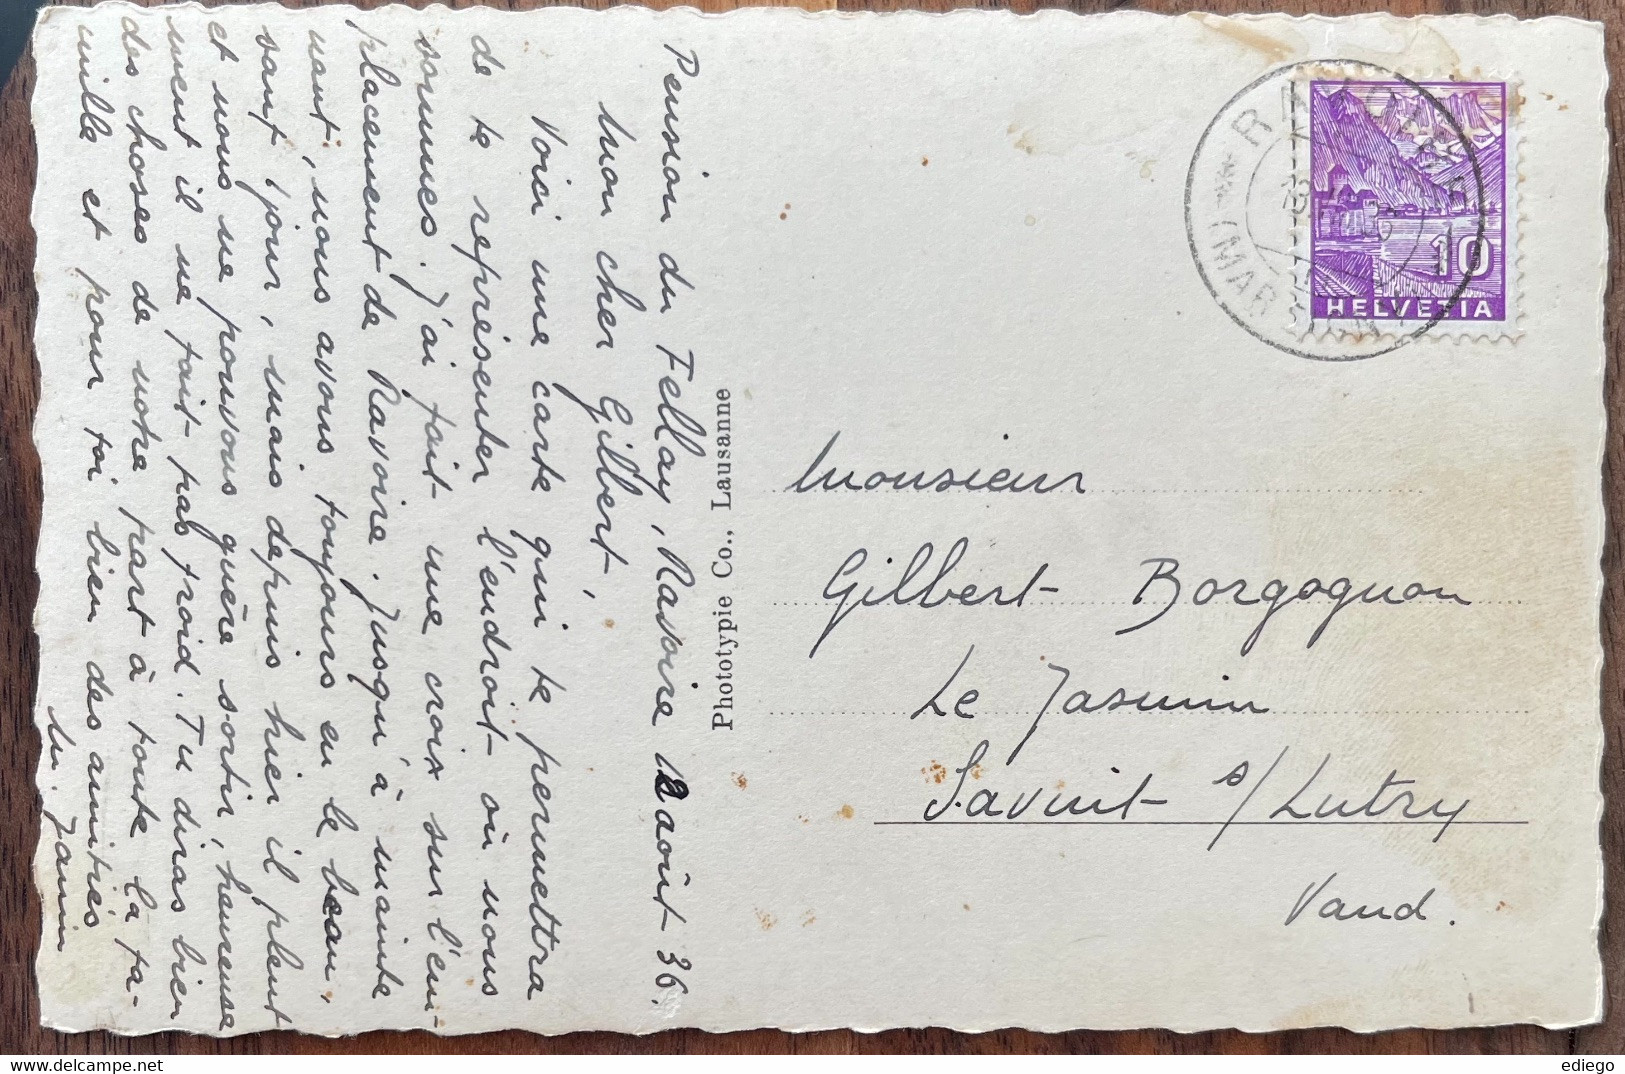 Pension du Fellay, Ravoire 12 août 36.
Mon cher Gilbert,
Voici une carte qui te permettra
de te représenter l'endroit où nous
sommes. J'ai fait une croix sur l'em-
placement de Ravoire. Jusqu'à mainte
nant, nous avons toujours eu le beau,
sant' jour, mais depuis hier il pleut
et nous ne pouvons guère sortir, heureuse
ment il ne fait pas froid. Tu diras bien
des choses de notre part à toute la fa-
mille et pour toi bien des amitiés
M. Jamin
Phototypie Co., Lausanne
RAVOIRE
(MARTIGNY)
10
HELVETIA
Monsieur
Gilbert Borgognon
Le Jasmin
Savuit s/Lutry
Vaud.
ediego